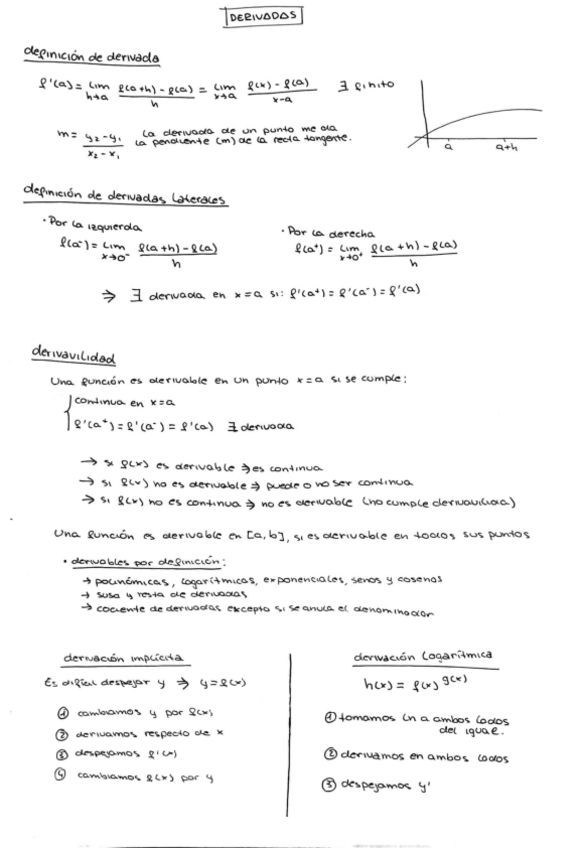 DERIVADAS
definición de derivada
f'(a) = lim h→a f(a+h) - f(a) / h = lim x→a f(x) - f(a) / x-a ∃ finito
m = y₂ - y₁ / x₂ - x₁ La derivada de un punto me da
la pendiente (m) de la recta tangente.
a a+h
definición de derivadas laterales
· Por la izquierda
f(a⁻) = lim x→0⁻ f(a+h) - f(a) / h
· Por la derecha
f(a⁺) = lim x→0⁺ f(a+h) - f(a) / h
⇒ ∃ derivada en x=a si: f'(a⁺) = f'(a⁻) = f'(a)
derivavilidad
Una función es derivable en un punto x=a si se cumple:
continua en x=a
f'(a⁺) = f'(a⁻) = f'(a) ∃ derivada
→ si f(x) es derivable ⇒ es continua
→ si f(x) no es derivable ⇒ puede o no ser continua
→ si f(x) no es continua ⇒ no es derivable (no cumple derivavilidad)
Una función es derivable en [a,b], si es derivable en todos sus puntos
· derivables por definición:
→ polinómicas, logarítmicas, exponenciales, senos y cosenos
→ susa y resta de derivadas
→ cociente de derivadas excepto si se anula el denominador
derivación implícita
Es difícil despejar y ⇒ y=f(x)
① cambiamos y por f(x)
② derivamos respecto de x
③ despejamos f'(x)
④ cambiamos f(x) por y
derivación logarítmica
h(x) = f(x)^g(x)
① tomamos ln a ambos lados
del igual.
② derivamos en ambos lados
③ despejamos y'